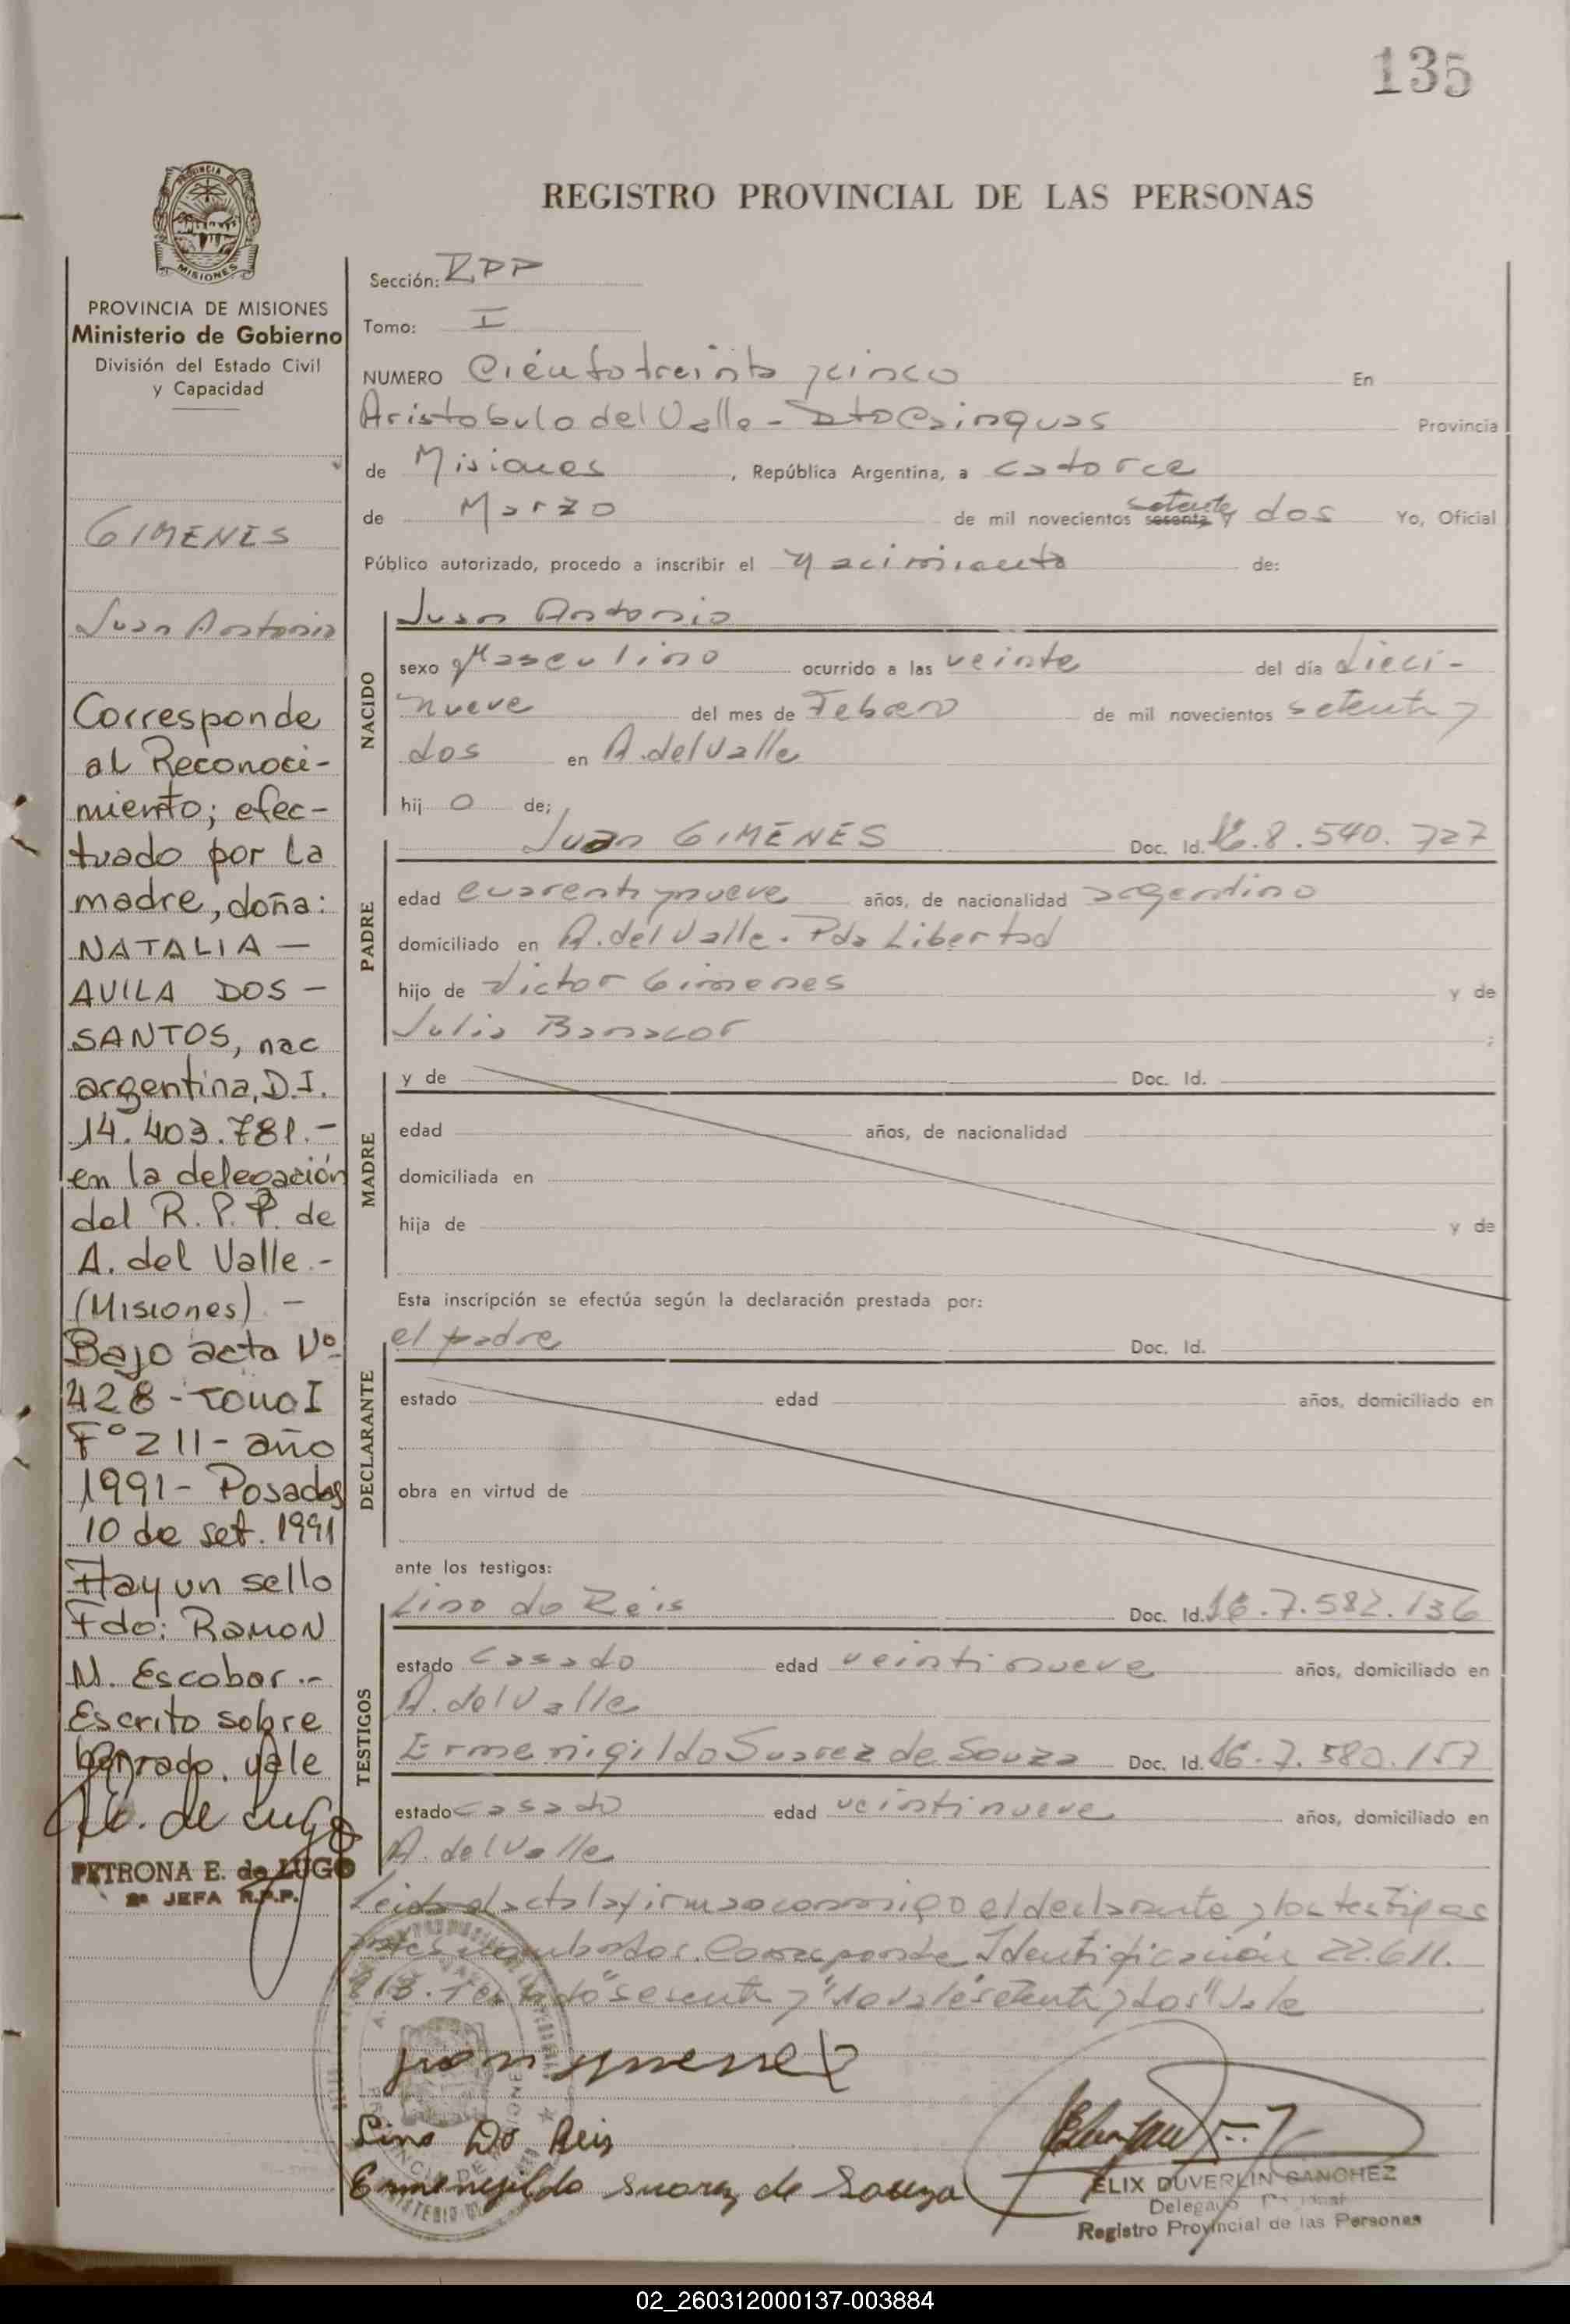 135
REGISTRO PROVINCIAL DE LAS PERSONAS
PROVINCIA DE MISIONES
Ministerio de Gobierno
División del Estado Civil
y Capacidad
GIMENES
Juan Antonio
Corresponde
al Reconoci-
miento; efec-
tuado por la
madre, doña:
NATALIA —
AVILA DOS -
SANTOS, nac
argentina, D.I.
14.403.781.-
en la delegación
del R.P.P. de
A. del Valle.-
(Misiones) -
Bajo acta Nº
428 - TOMO I
Fº 211 - año
1991 - Posadas
10 de set. 1991
Hay un sello
Fdo: RAMON
M. Escobar.-
Escrito sobre
borrado. vale
de Lugo
PETRONA E. de LUGO
2ª JEFA R.P.P.
Sección: RPP
Tomo: I
NUMERO Ciento treinta y cinco En
Aristobulo del Valle - Dto Cainguas Provincia
de Misiones, República Argentina, a catorce
de Marzo de mil novecientos sesenta y setenta y dos Yo, Oficial
Público autorizado, procedo a inscribir el nacimiento de:
NACIDO
Juan Antonio
sexo Masculino ocurrido a las veinte del día dieci-
nueve del mes de Febrero de mil novecientos setenta y
dos en A. del Valle
hijo de;
PADRE
Juan GIMENES Doc. Id. 8.540.727
edad cuarenta y nueve años, de nacionalidad argentino
domiciliado en A. del Valle. Pda Libertad
hijo de Victor Gimenes y de
Julia
MADRE
y de Doc. Id.
edad años, de nacionalidad
domiciliada en
hija de y de
Esta inscripción se efectúa según la declaración prestada por:
DECLARANTE
el padre Doc. Id.
estado edad años, domiciliado en
obra en virtud de
ante los testigos:
TESTIGOS
Lino do Reis Doc. Id. 7.582.136
estado casado edad veintinueve años, domiciliado en
A. del Valle
Ermenigildo Suarez de Souza Doc. Id. 7.580.157
estado casado edad veintinueve años, domiciliado en
A. del Valle
Leida el acta la firman conmigo el declarante y los testigos
antes nombrados. Corresponde Identificación 22.611.
813. Testado "sesenta y" no vale "setenta y dos" Vale
Juan
Lino Do Reis
Ermenegildo Suarez de Souza
ELIX DUVERLIN SANCHEZ
Registro Provincial de las Personas
02_260312000137-003884